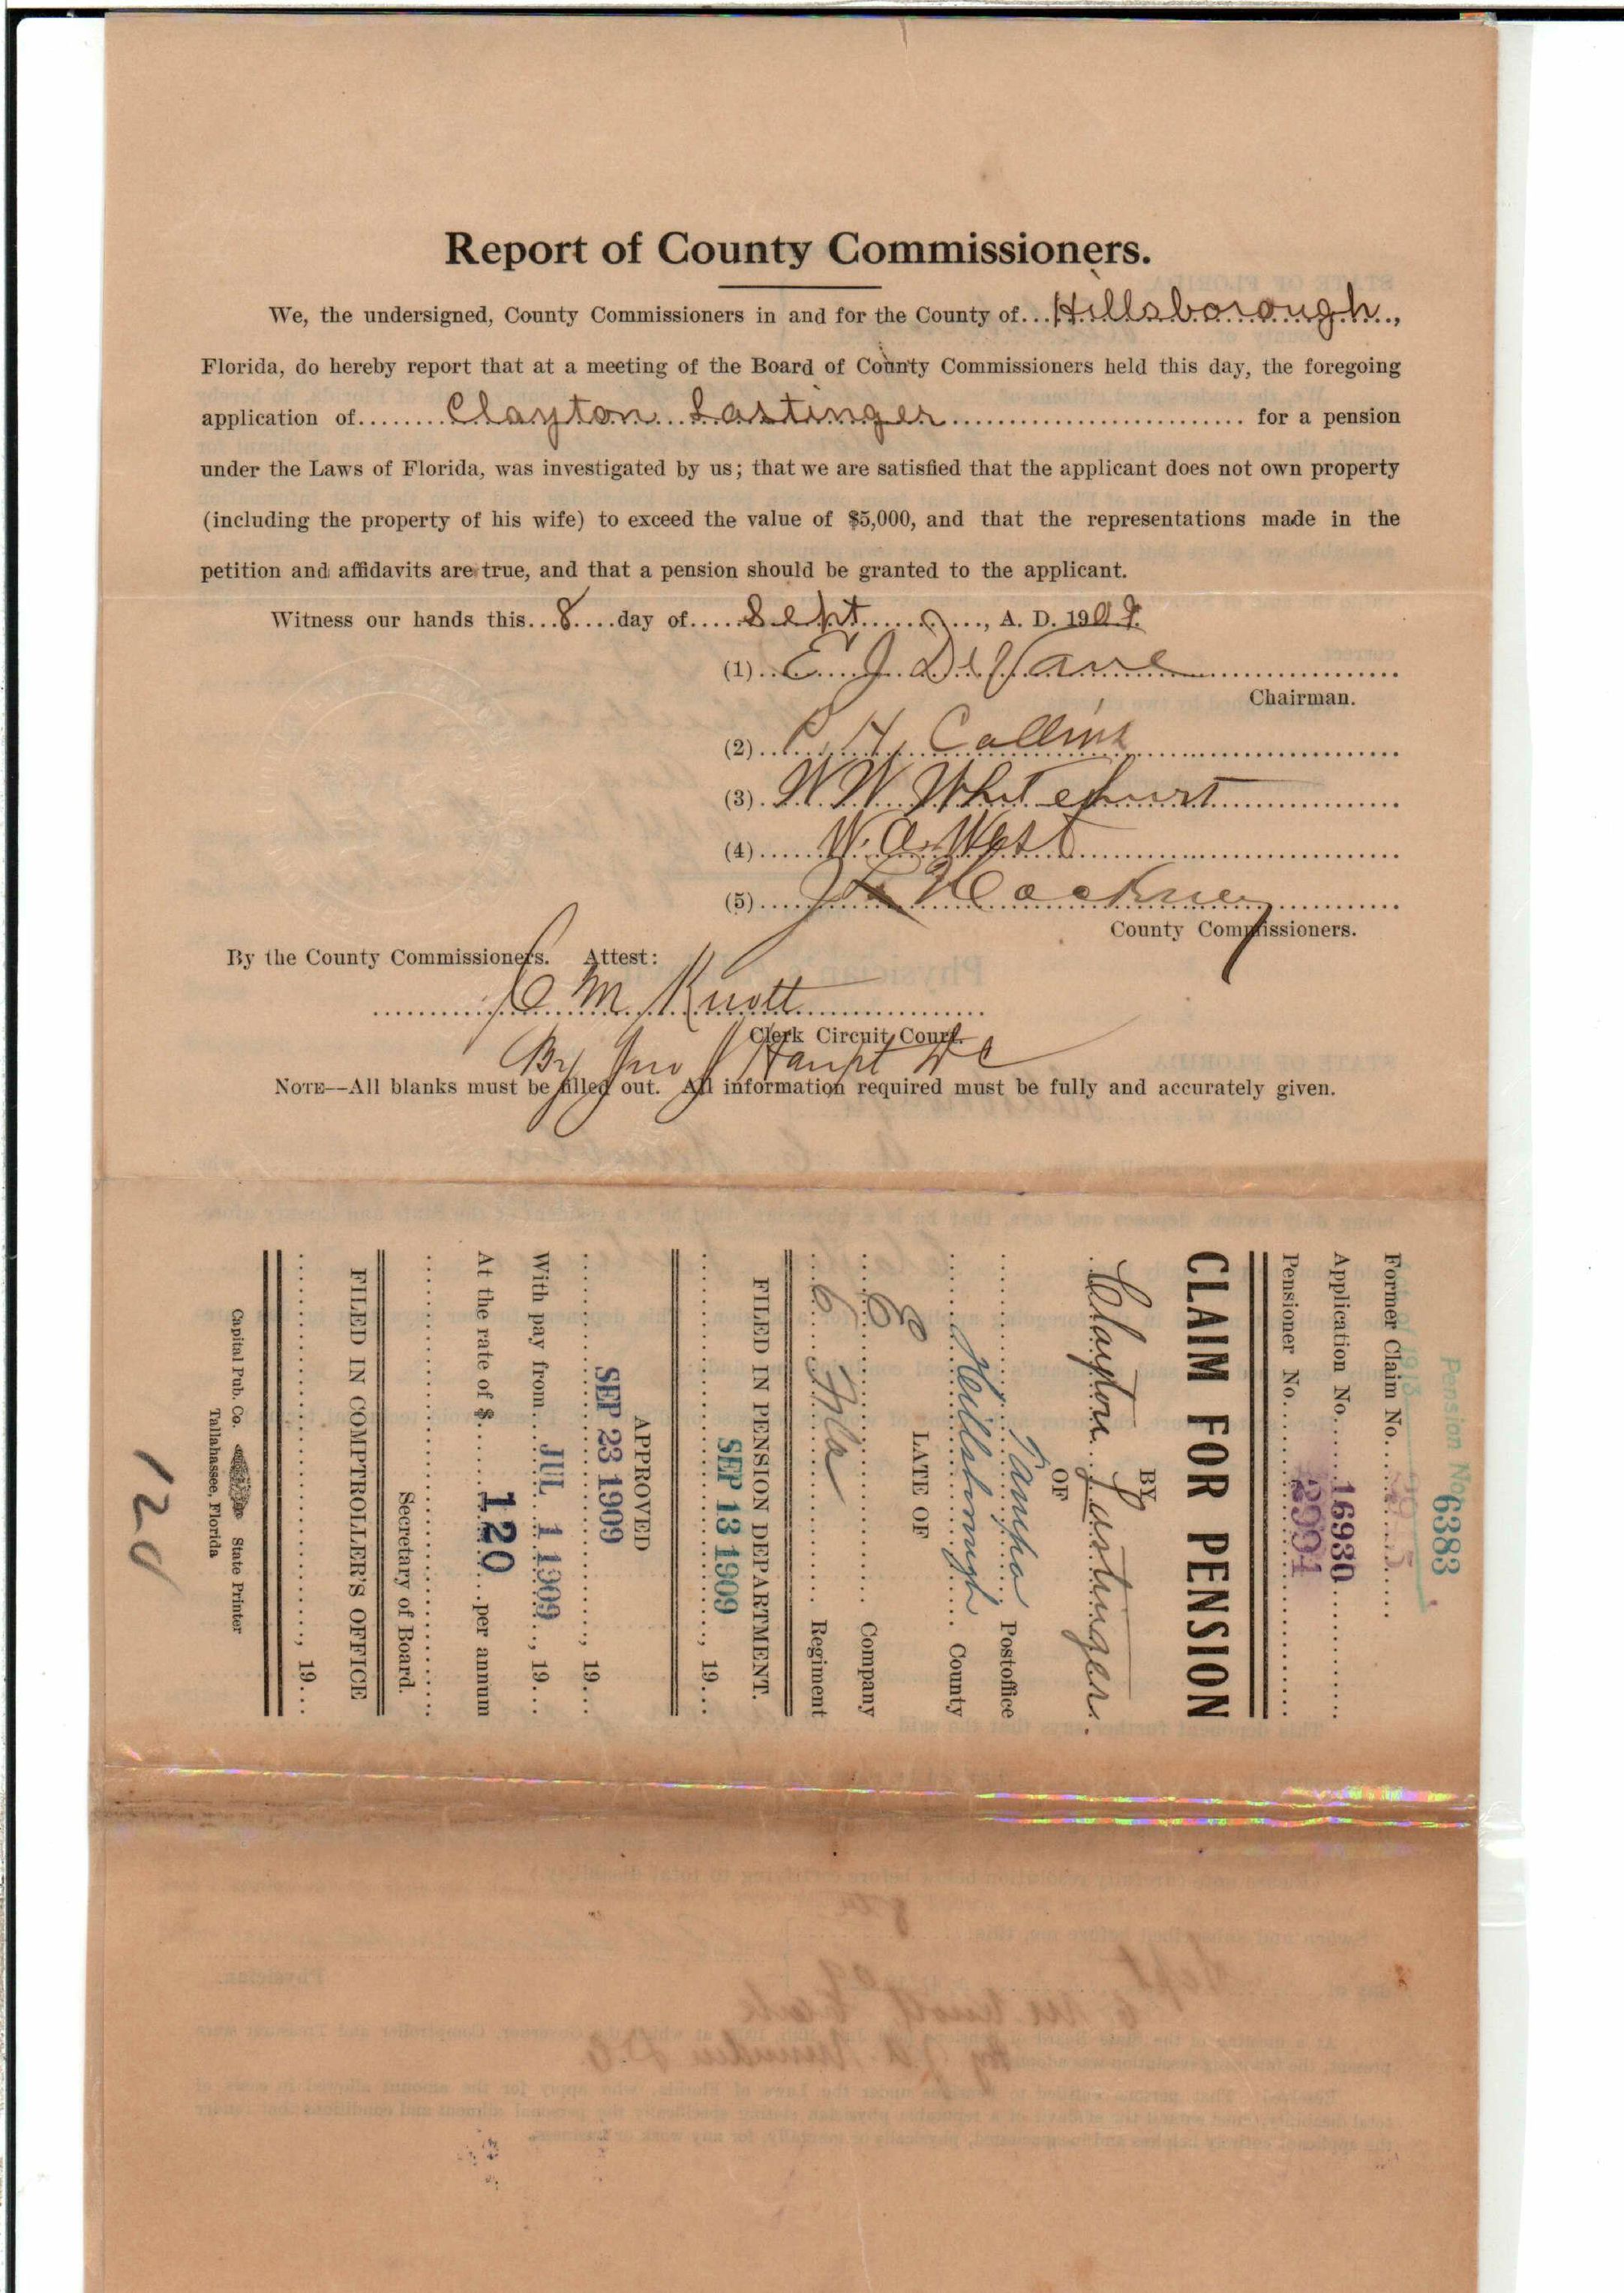 Report of County Commissioners.
We, the undersigned, County Commissioners in and for the County of...Hillsborough,
Florida, do hereby report that at a meeting of the Board of County Commissioners held this day, the foregoing
application of........Clayton Lastinger............................ for a pension
under the Laws of Florida, was investigated by us; that we are satisfied that the applicant does not own property
(including the property of his wife) to exceed the value of $5,000, and that the representations made in the
petition and affidavits are true, and that a pension should be granted to the applicant.
Witness our hands this...8....day of.....Sept........, A. D. 1909.
(1) E J DeVane
Chairman.
(2) H. Collins
(3) W W Whitehurst
(4) W. A. West
(5) Hackney
County Commissioners.
By the County Commissioners. Attest:
C M Knott
Clerk Circuit Court.
By Jno Haupt D C
NOTE--All blanks must be filled out. All information required must be fully and accurately given.
Pension No. 6383
Former Claim No.
Application No. 16930
Pensioner No. 2994
CLAIM FOR PENSION
BY
Clayton Lastinger.
OF
Tampa Postoffice
Hillsborough County
LATE OF
E Company
6 Fla Regiment
FILED IN PENSION DEPARTMENT.
SEP 13 1909 , 19...
APPROVED
SEP 23 1909 , 19...
With pay from JUL 1 1909 , 19...
At the rate of $ 120 per annum
Secretary of Board.
FILED IN COMPTROLLER'S OFFICE
, 19...
Capital Pub. Co. State Printer
Tallahassee, Florida
120